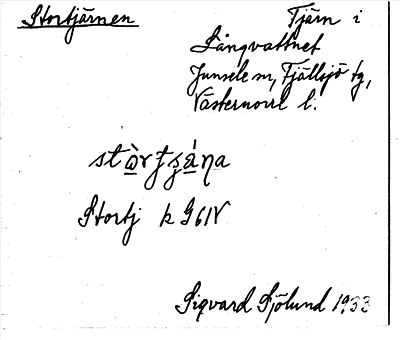 Stortjärnen
Tjärn i
Långvattnet
Junsele sn, Fjällsjö tg,
Västernorrl l.
Stortj k G61V
Sigvard Sjölund 1933